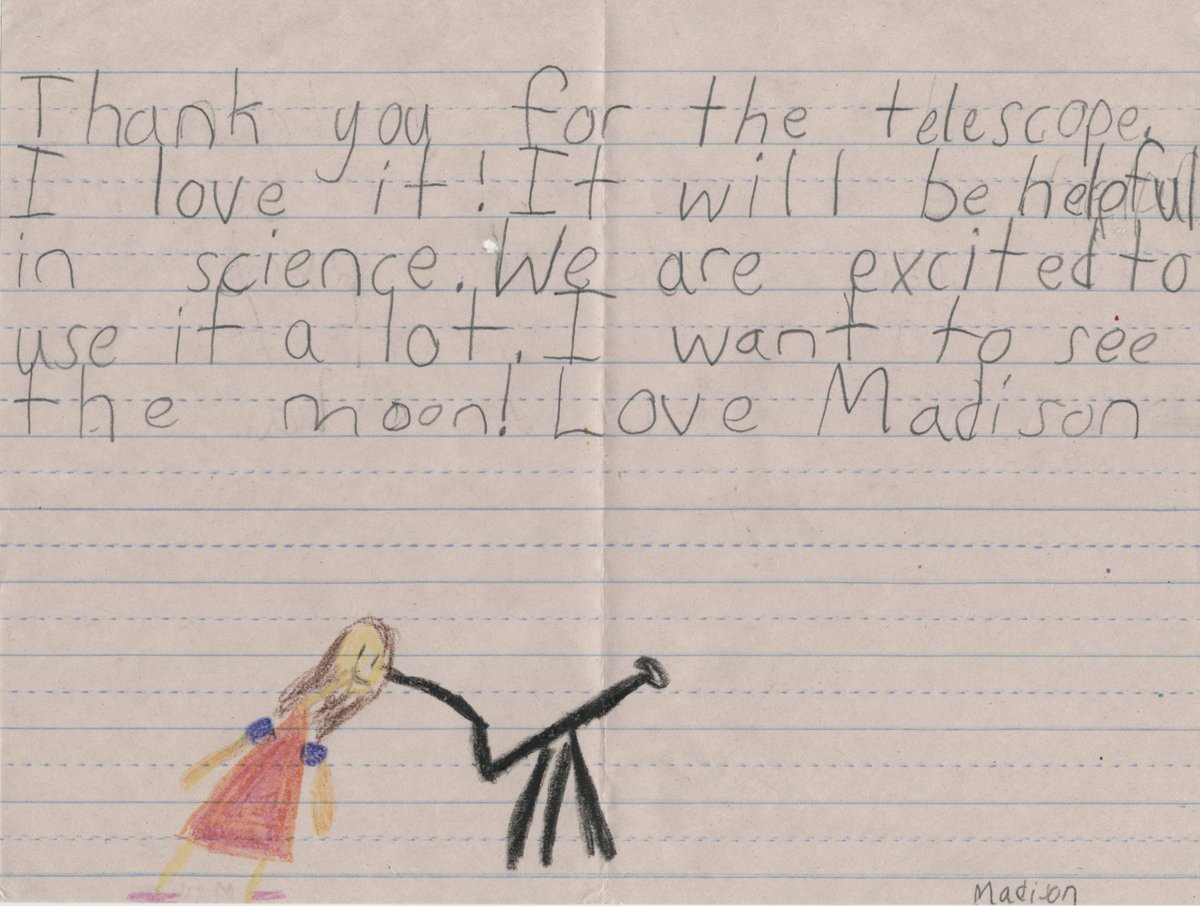 Thank you for the telescope.
I love it! It will be helpful
in science. We are excited to
use it a lot. I want to see
the moon! Love Madison
Madison